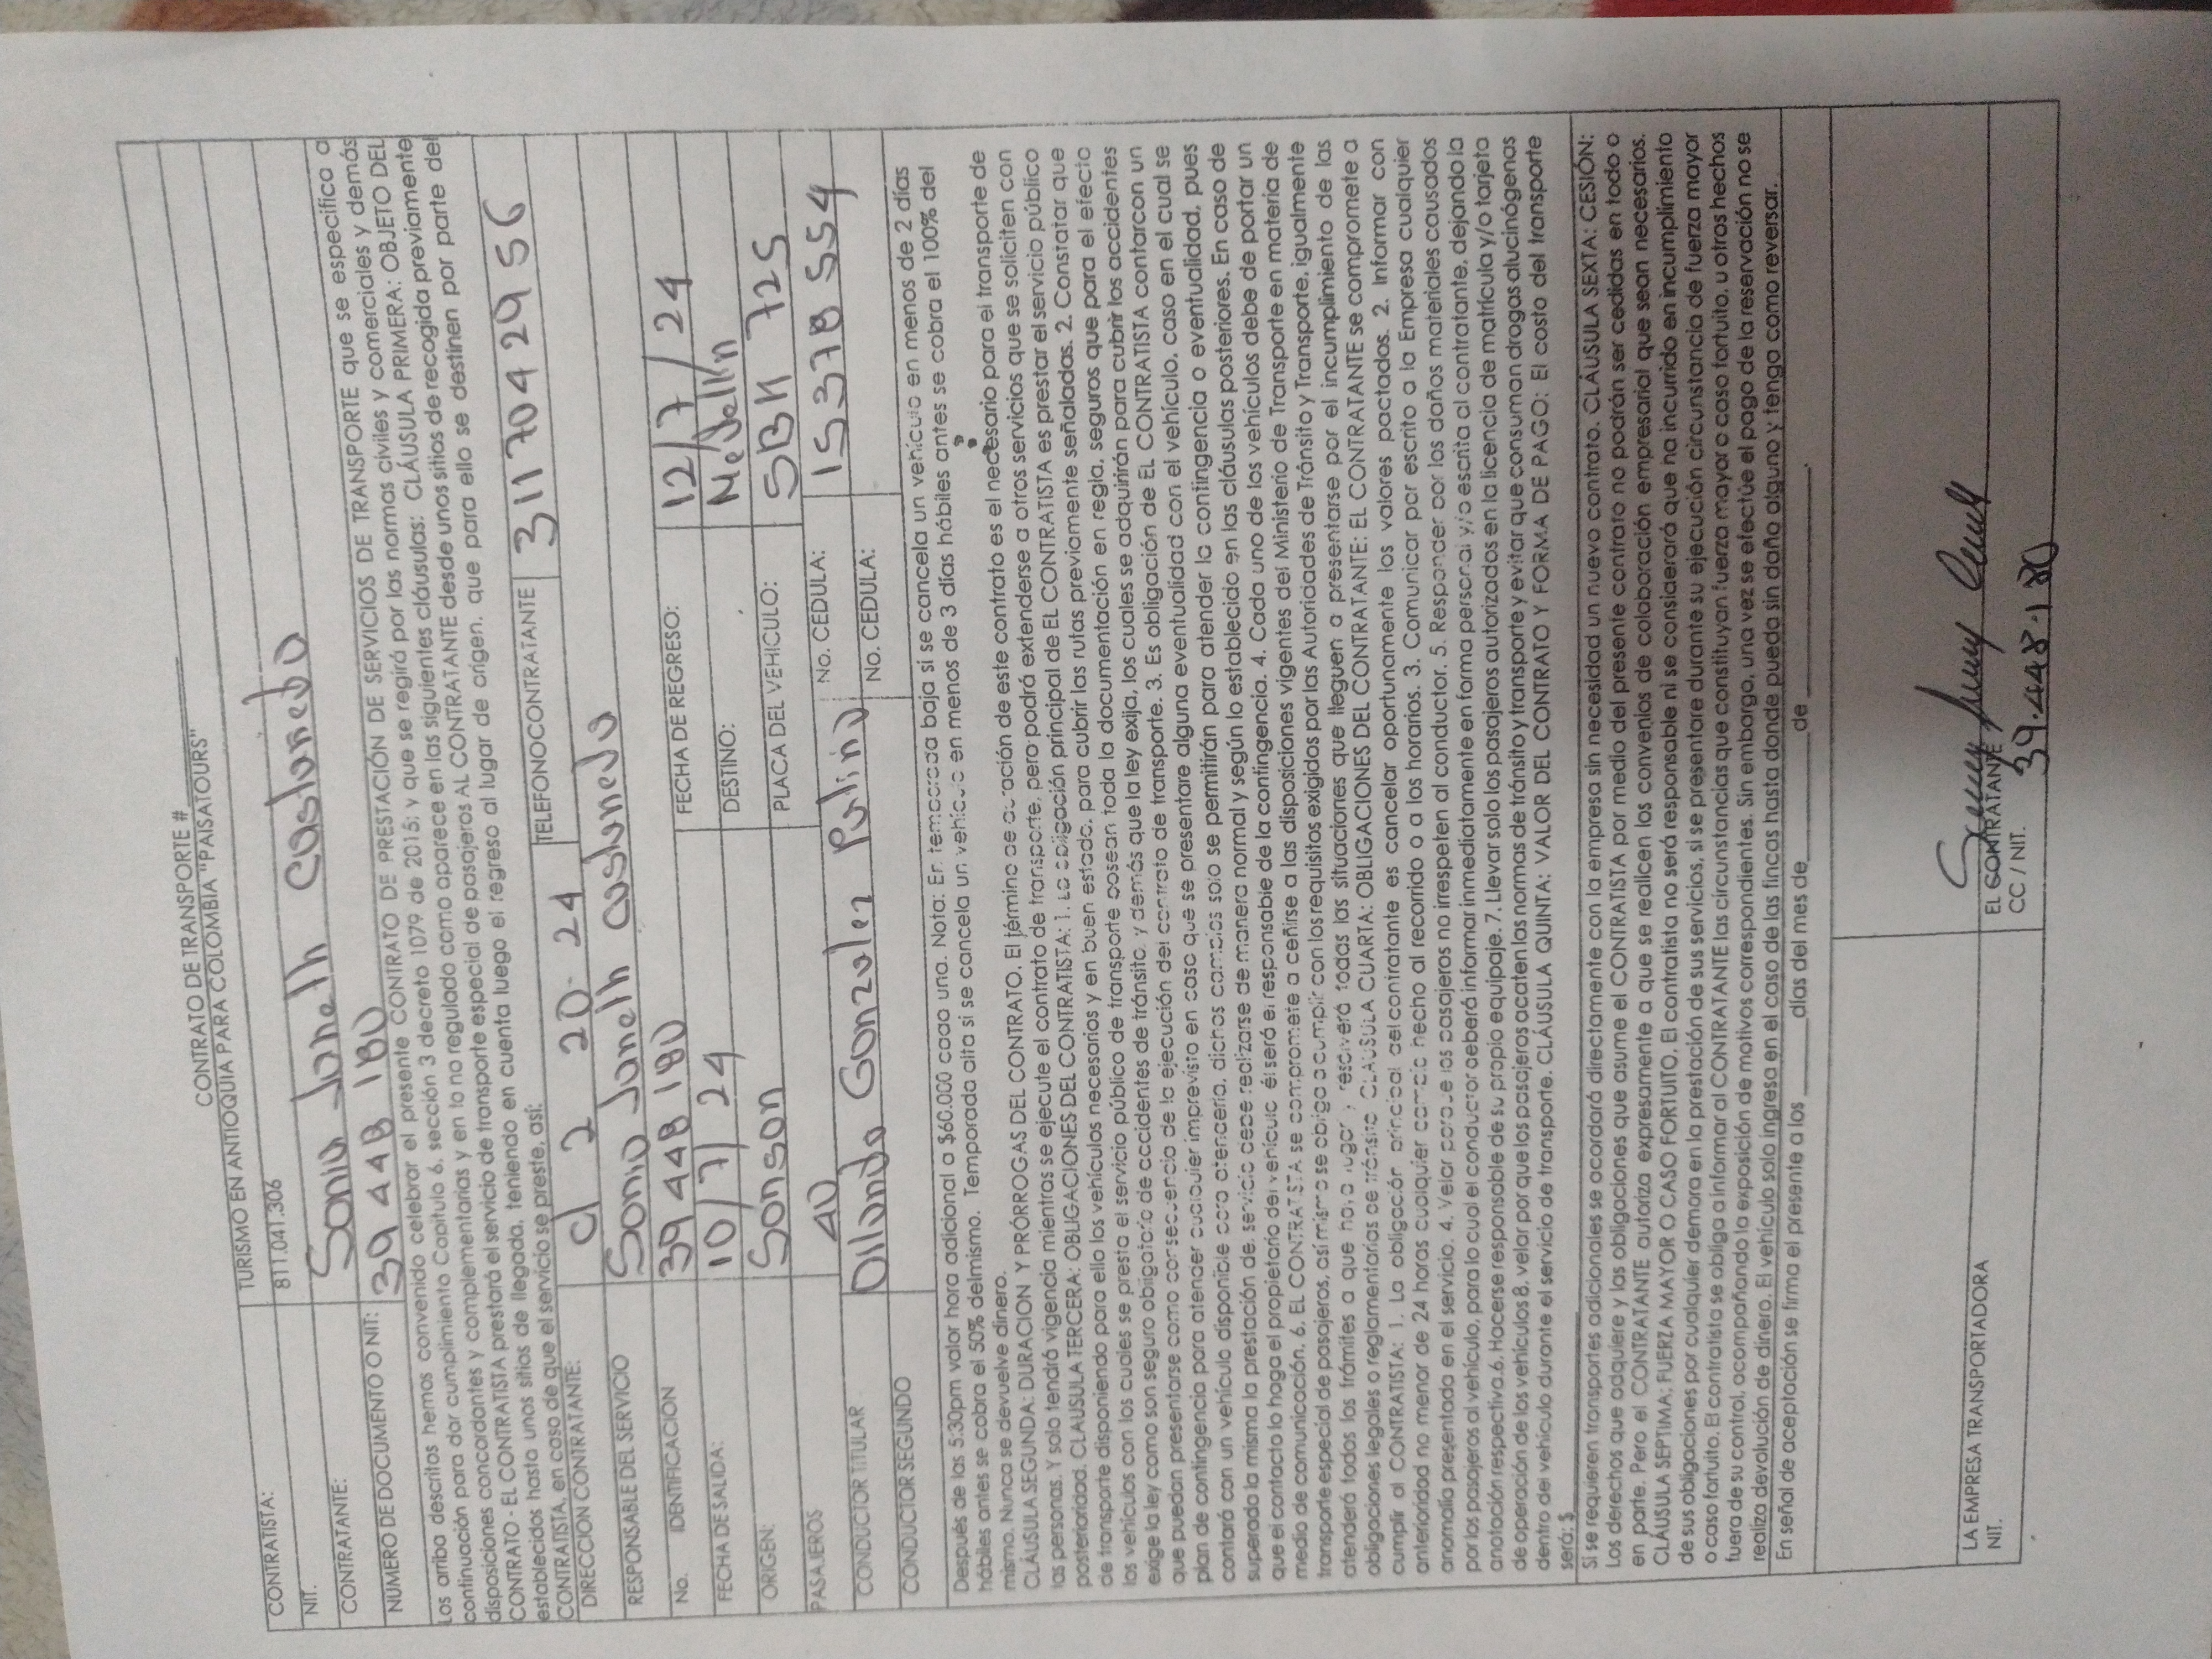 CONTRATO DE TRANSPORTE #
TURISMO EN ANTIOQUIA PARA COLOMBIA "PAISATOURS"
CONTRATISTA:
NIT. 811.041.306
CONTRATANTE: Sonia Janeth Castaneda
NUMERO DE DOCUMENTO O NIT: 39 448 180
Los arriba descritos hemos convenido celebrar el presente CONTRATO DE PRESTACIÓN DE SERVICIOS DE TRANSPORTE que se especifica a
continuación para dar cumplimiento Capitulo 6, sección 3 decreto 1079 de 2015; y que se regirá por las normas civiles y comerciales y demás
disposiciones concordantes y complementarias y en lo no regulado como aparece en las siguientes cláusulas: CLÁUSULA PRIMERA: OBJETO DEL
CONTRATO - EL CONTRATISTA prestará el servicio de transporte especial de pasajeros AL CONTRATANTE desde unos sitios de recogida previamente
establecidos hasta unos sitios de llegada, teniendo en cuenta luego el regreso al lugar de origen, que para ello se destinen por parte del
CONTRATISTA, en caso de que el servicio se preste, así:
DIRECCION CONTRATANTE: cl 2 20-24 TELEFONOCONTRATANTE 311 704 29 56
RESPONSABLE DEL SERVICIO Sonia Janeth castaneda
No. IDENTIFICACION 39 448 180 FECHA DE REGRESO: 12/7/24
FECHA DE SALIDA: 10/7/24 DESTINO: Medellin
ORIGEN: Sonson PLACA DEL VEHICULO: SBK 725
PASAJEROS 40
CONDUCTOR TITULAR Gonzalez No. CEDULA: 15 378 554
CONDUCTOR SEGUNDO No. CEDULA:
Después de las 5:30pm valor hora adicional a $60.000 cada una. Nota: En temporada baja si se cancela un vehículo en menos de 2 días
hábiles antes se cobra el 50% delmismo. Temporada alta si se cancela un vehículo en menos de 3 días hábiles antes se cobra el 100% del
mismo. Nunca se devuelve dinero.
CLÁUSULA SEGUNDA: DURACION Y PRÓRROGAS DEL CONTRATO. El término de duración de este contrato es el necesario para el transporte de
las personas. Y solo tendrá vigencia mientras se ejecute el contrato de transporte, pero podrá extenderse a otros servicios que se soliciten con
posterioridad. CLAUSULA TERCERA: OBLIGACIONES DEL CONTRATISTA: 1. La obligación principal de EL CONTRATISTA es prestar el servicio público
de transporte disponiendo para ello los vehículos necesarios y en buen estado, para cubrir las rutas previamente señaladas. 2. Constatar que
los vehículos con los cuales se presta el servicio público de transporte posean toda la documentación en regla, seguros que para el efecto
exige la ley como son seguro obligatorio de accidentes de tránsito, y demás que la ley exija, los cuales se adquirirán para cubrir los accidentes
que puedan presentarse como consecuencia de la ejecución del contrato de transporte. 3. Es obligación de EL CONTRATISTA contarcon un
plan de contingencia para atender cualquier imprevisto en caso que se presentare alguna eventualidad con el vehículo, caso en el cual se
contará con un vehículo disponible para atenderlo, dichos cambios solo se permitirán para atender la contingencia o eventualidad, pues
superada la misma la prestación del servicio debe realizarse de manera normal y según lo establecido en las cláusulas posteriores. En caso de
que el contacto lo haga el propietario del vehículo él será el responsable de la contingencia. 4. Cada uno de los vehículos debe de portar un
medio de comunicación. 6. EL CONTRATISTA se compromete a ceñirse a las disposiciones vigentes del Ministerio de Transporte en materia de
transporte especial de pasajeros, así mismo se obliga a cumplir con los requisitos exigidos por las Autoridades de Tránsito y Transporte, igualmente
atenderá todos los trámites a que haya lugar y resolverá todas las situaciones que lleguen a presentarse por el incumplimiento de las
obligaciones legales o reglamentarias de tránsito CLAUSULA CUARTA: OBLIGACIONES DEL CONTRATANTE: EL CONTRATANTE se compromete a
cumplir al CONTRATISTA: 1. La obligación principal del contratante es cancelar oportunamente los valores pactados. 2. Informar con
anterioridad no menor de 24 horas cualquier cambio hecho al recorrido o a los horarios. 3. Comunicar por escrito a la Empresa cualquier
anomalía presentada en el servicio. 4. Velar porque los pasajeros no irrespeten al conductor. 5. Responder por los daños materiales causados
por los pasajeros al vehículo, para lo cual el conductor deberá informar inmediatamente en forma personal y/o escrita al contratante, dejando la
anotación respectiva.6. Hacerse responsable de su propio equipaje. 7. Llevar solo los pasajeros autorizados en la licencia de matrícula y/o tarjeta
de operación de los vehículos 8. velar por que los pasajeros acaten las normas de tránsito y transporte y evitar que consuman drogas alucinógenas
dentro del vehículo durante el servicio de transporte. CLÁUSULA QUINTA: VALOR DEL CONTRATO Y FORMA DE PAGO: El costo del transporte
será: $
Si se requieren transportes adicionales se acordará directamente con la empresa sin necesidad un nuevo contrato. CLÁUSULA SEXTA: CESIÓN:
Los derechos que adquiere y las obligaciones que asume el CONTRATISTA por medio del presente contrato no podrán ser cedidas en todo o
en parte. Pero el CONTRATANTE autoriza expresamente a que se realicen los convenios de colaboración empresarial que sean necesarios.
CLÁUSULA SEPTIMA: FUERZA MAYOR O CASO FORTUITO. El contratista no será responsable ni se considerará que ha incurrido en incumplimiento
de sus obligaciones por cualquier demora en la prestación de sus servicios, si se presentare durante su ejecución circunstancia de fuerza mayor
o caso fortuito. El contratista se obliga a informar al CONTRATANTE las circunstancias que constituyan fuerza mayor o caso fortuito, u otros hechos
fuera de su control, acompañando la exposición de motivos correspondientes. Sin embargo, una vez se efectúe el pago de la reservación no se
realiza devolución de dinero. El vehículo solo ingresa en el caso de las fincas hasta donde pueda sin daño alguno y tengo como reversar.
En señal de aceptación se firma el presente a los ______días del mes de____________de____________.
LA EMPRESA TRANSPORTADORA EL CONTRATANTE
NIT. CC / NIT. 39.448.180